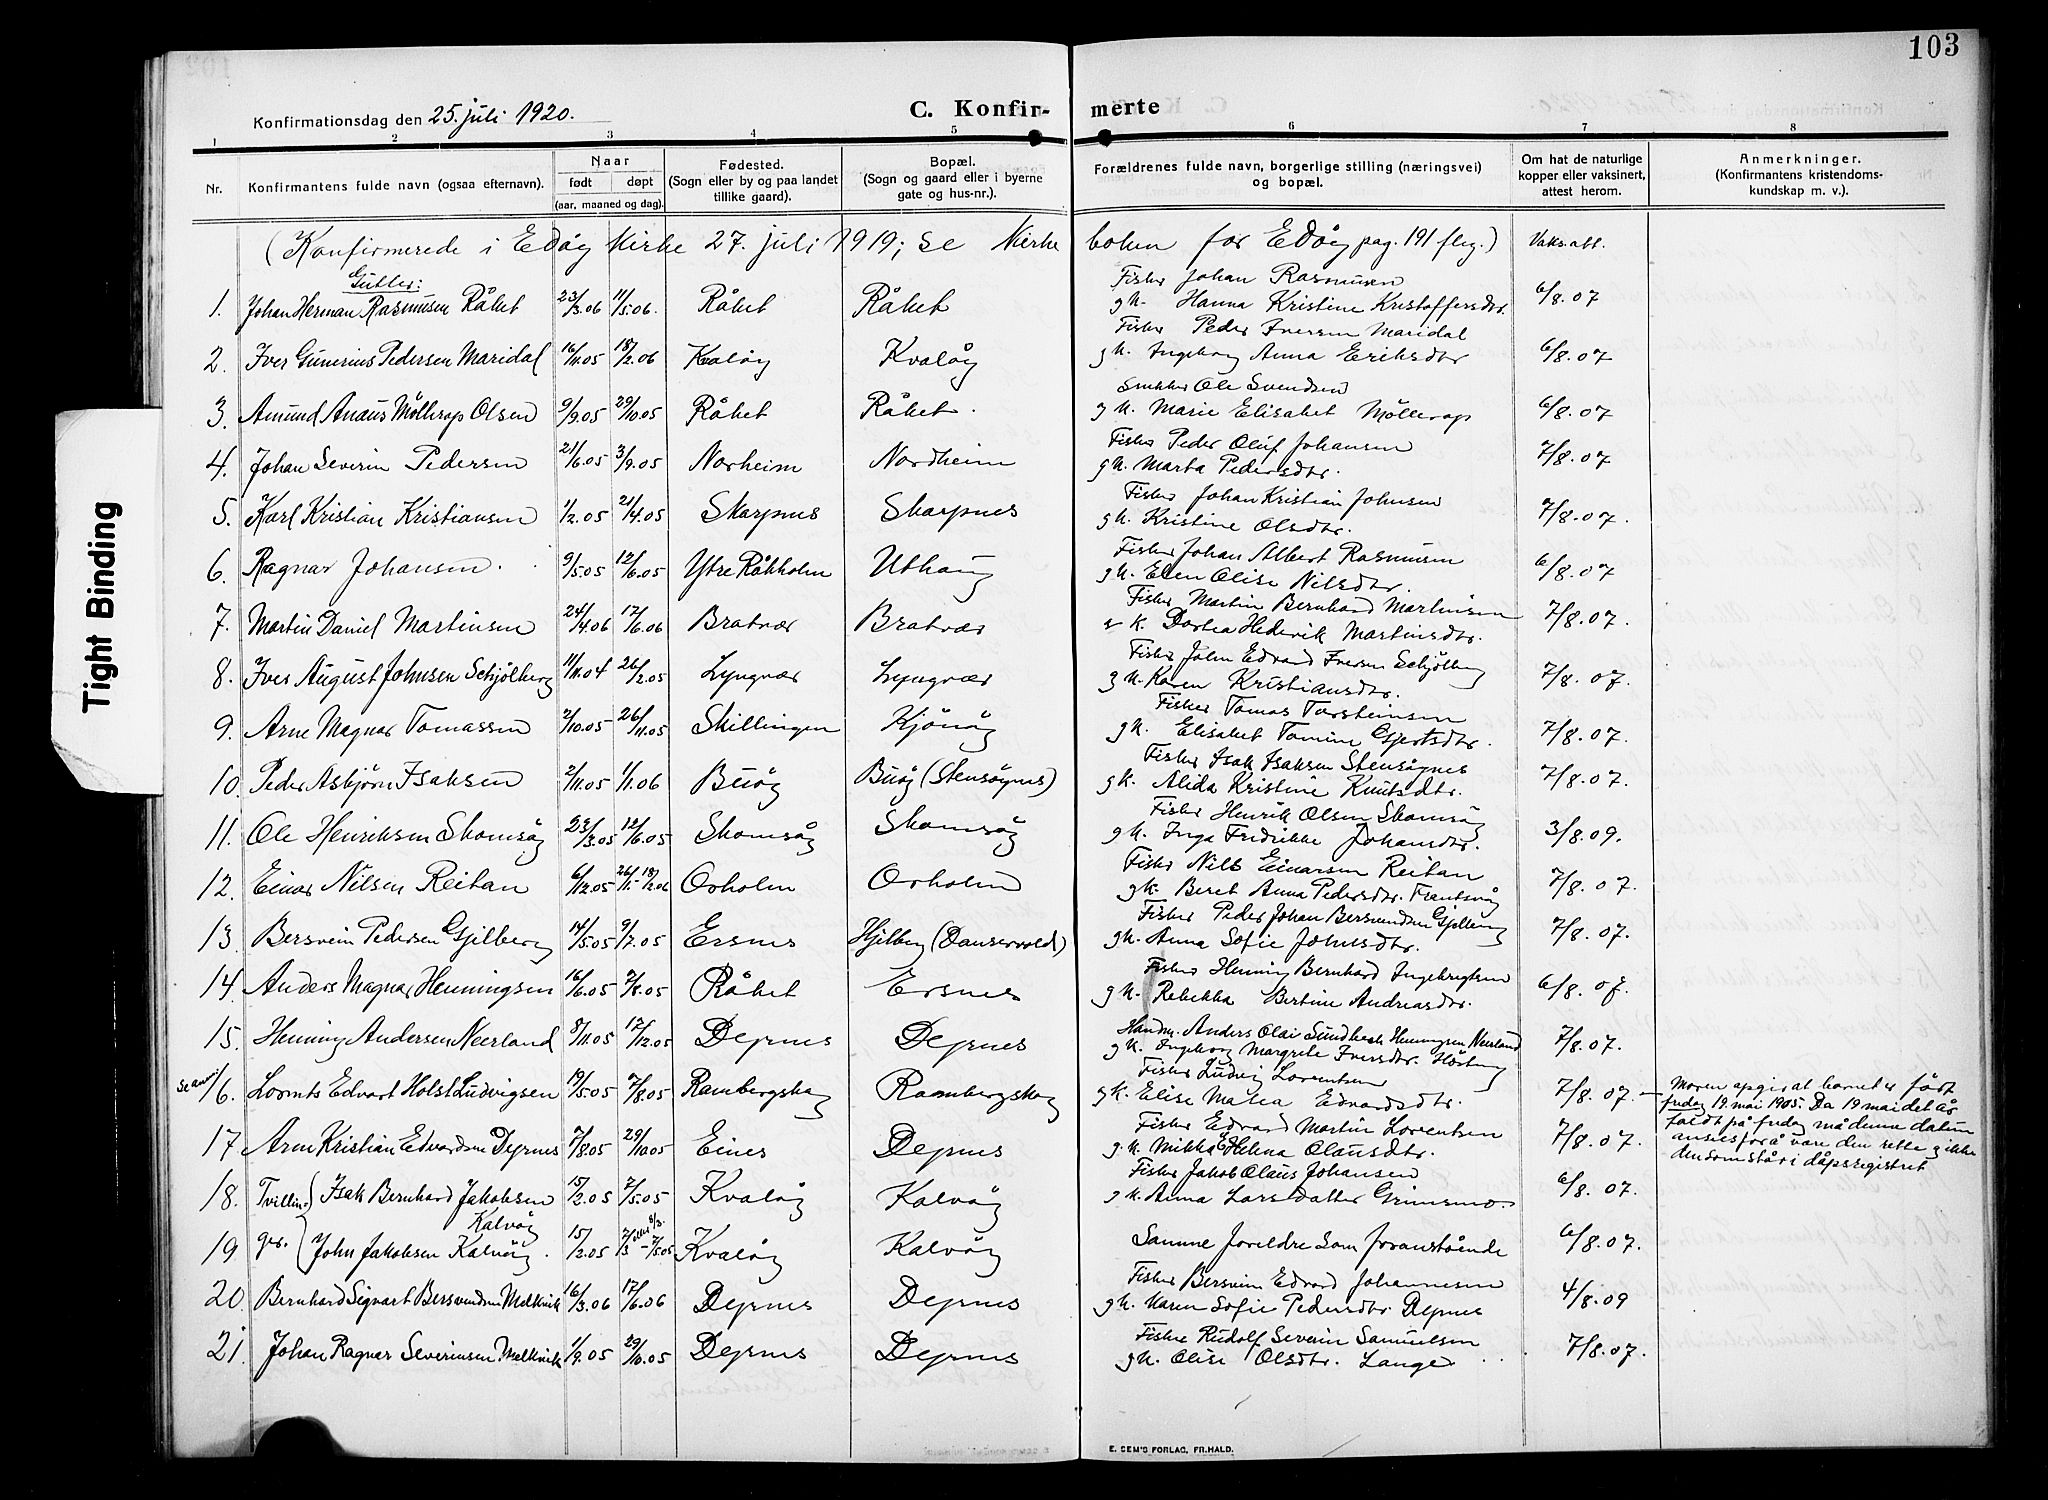 103
Konfirmationsdag den 25. juli 1920.
C. Konfir-
merte
1 2 3 4 5 6 7 8
Nr.
Konfirmantens fulde navn (ogsaa efternavn).
Naar
født
døpt
(aar, maaned og dag).
Fødested.
(Sogn eller by og paa landet
tillike gaard).
Bopæl.
(Sogn og gaard eller i byerne
gate og hus-nr.).
Forældrenes fulde navn, borgerlige stilling (næringsvei)
og bopæl.
Om hat de naturlige
kopper eller vaksinert,
attest herom.
Anmerkninger.
(Konfirmantens kristendoms-
kundskap m. v.).
(Konfirmerede i Edöy Kirke 27. juli 1919; se Kirke
boken for Edöy pag. 191 flg.) Vaks. att.
Gutter:
Fisker Johan Rasmusen
1. Johan Herman Rasmusen Råket 23/3.06 11/5.06. Råket Råket g k. Hanna Kristine Kristoffersdtr. 6/8.07
Fisker Peder Iversen Maridal
2. Iver Gunerius Pedersen Maridal 16/11.05 18/2.06 Kvalöy Kvalöy g k. Ingeborg Anna Eriksdtr 6/8.07
Snekker Ole Svendsen
3. Amund Anaus Möllerop Olsen 9/9.05 29/10.05 Råket Råket. g k. Marie Elisabet Möllerop 6/8.07
Fisker Peder Oluf Johansen
4. Johan Severin Pedersen 21/6.05 3/9.05 Norheim Nordheim g k. Marta Pedersdtr. 7/8.07
Fisker Johan Kristian Johnsen
5. Karl Kristian Kristiansen 1/2.05 21/4.05 Skarpnes Skarpnes g k. Kristine Olsdtr. 7/8.07.
Fisker Johan Albert Rasmusen
6. Ragnar Johansen. 9/5.05 12/6.05 Ytre Råkholm Uthaug g k. Elen Olise Nilsdtr. 6/8.07
Fisker Martin Bernhard Martinsen
7. Martin Daniel Martinsen 24/4.06 17/6.06 Bratvær Bratvær k. Dortea Hederik Martinsdtr. 7/8.07.
Fisker John Edvard Iversen Schjölberg
8. Iver August Johnsen Schjölberg 11/11.04 26/2.05 Lyngvær Lyngvær g k. Karen Kristiansdtr. 7/8.07.
Fisker Tomas Torsteinsen
9. Arne Magnar Tomassen 2/10.05 26/11.05 Skillingen Kjönöy g k. Elisabet Tomine Gjertsdtr. 7/8.07.
Fisker Isak Isaksen Stensöynes
10. Peder Asbjörn Isaksen 2/11.05 1/1.06 Buöy Buöy (Stensöynes) g k. Alida Kristine Knutsdtr. 7/8.07.
Fisker Henrik Olsen Skomsöy
11. Ole Henriksen Skomsöy 23/3.05 12/6.05 Skomsöy Skomsöy g k. Inga Fredrikke Johansdtr. 3/8.09.
Fisker Nils Einarsen Reitan
12. Einar Nilsen Reitan 6/12.05 26/1-18/2.06 Orholm Orholm g k. Beret Anna Pedersdtr. 7/8.07.
Fisker Peder Johan Bersvendsen Gjilberg
13. Bersvein Pedersen Gjilberg 14/5.05 9/7.05 Ersnes Hjelberg g k. Anna Sofie Johnsdtr. 7/8.07.
Fisker Henning Bernhard Ingebregtsen
14. Anders Magnar Henningsen 16/6.05 7/8.05 Råket Ersnes g k. Rebekka Bertine Andreasdtr. 6/8.07.
Handm. Anders Olai Sundbeck Henningsen Neerland
15. Henning Andersen Neerland 8/11.05 17/12.05 Dyrnes Dyrnes g k. Ingeborg Margrete Iversdtr. 7/8.07.
Fisker Ludvig Lorentsen
16. Lornts Edvart Holst Ludvigsen 19/5.05 7/8.05 Rambergshaug Rambergshaug g k. Elise Matea Edvardsdtr. 7/8.07. Moren opgir at barnet er født
fredag 19. mai 1905. Da 19 mai det år
faldt på fredag må denne datum
ansees for å være den rette & ikke
den som står i dåpsregistret
Fisker Edvard Martin Lorentsen
17 Arne Kristian Edvardsen Dyrnes 7/8.05 29/10.05 Eines Dyrnes g. k. Mikka E Helena Olausdtr. 7/8.07.
Fisker Jakob Olaus Johansen
18. Tvillin- Isak Bernhard Jakobsen 15/2.05 7/5.05 Kvalöy Kalvöy g k. Anna Larsdatter Grimsmo. 6/8.07.
Kalvöy
19 ger. John Jakobsen Kalvöy. 15/2.05 7/5.05 Kvalöy Kalvöy Samme foreldre som foranstående 6/8.07.
Fisker Bersvein Edvard Johannesen
20. Bernhard Sigvart Bersvendsen Melkvik 16/3.06 17/6.06 Dyrnes Dyrnes g k. Karen Sofie Pedersdtr Dyrnes 4/8.09
Fisker Rudolf Severin Samuelsen
21. Johan Ragnar Severinsen Melkvik 1/9.05 29/10.05 Dyrnes Dyrnes g k. Olise Olsdtr. Lange 7/8.07.
E. SEM'S FORLAG, FR.HALD.
Tight Binding